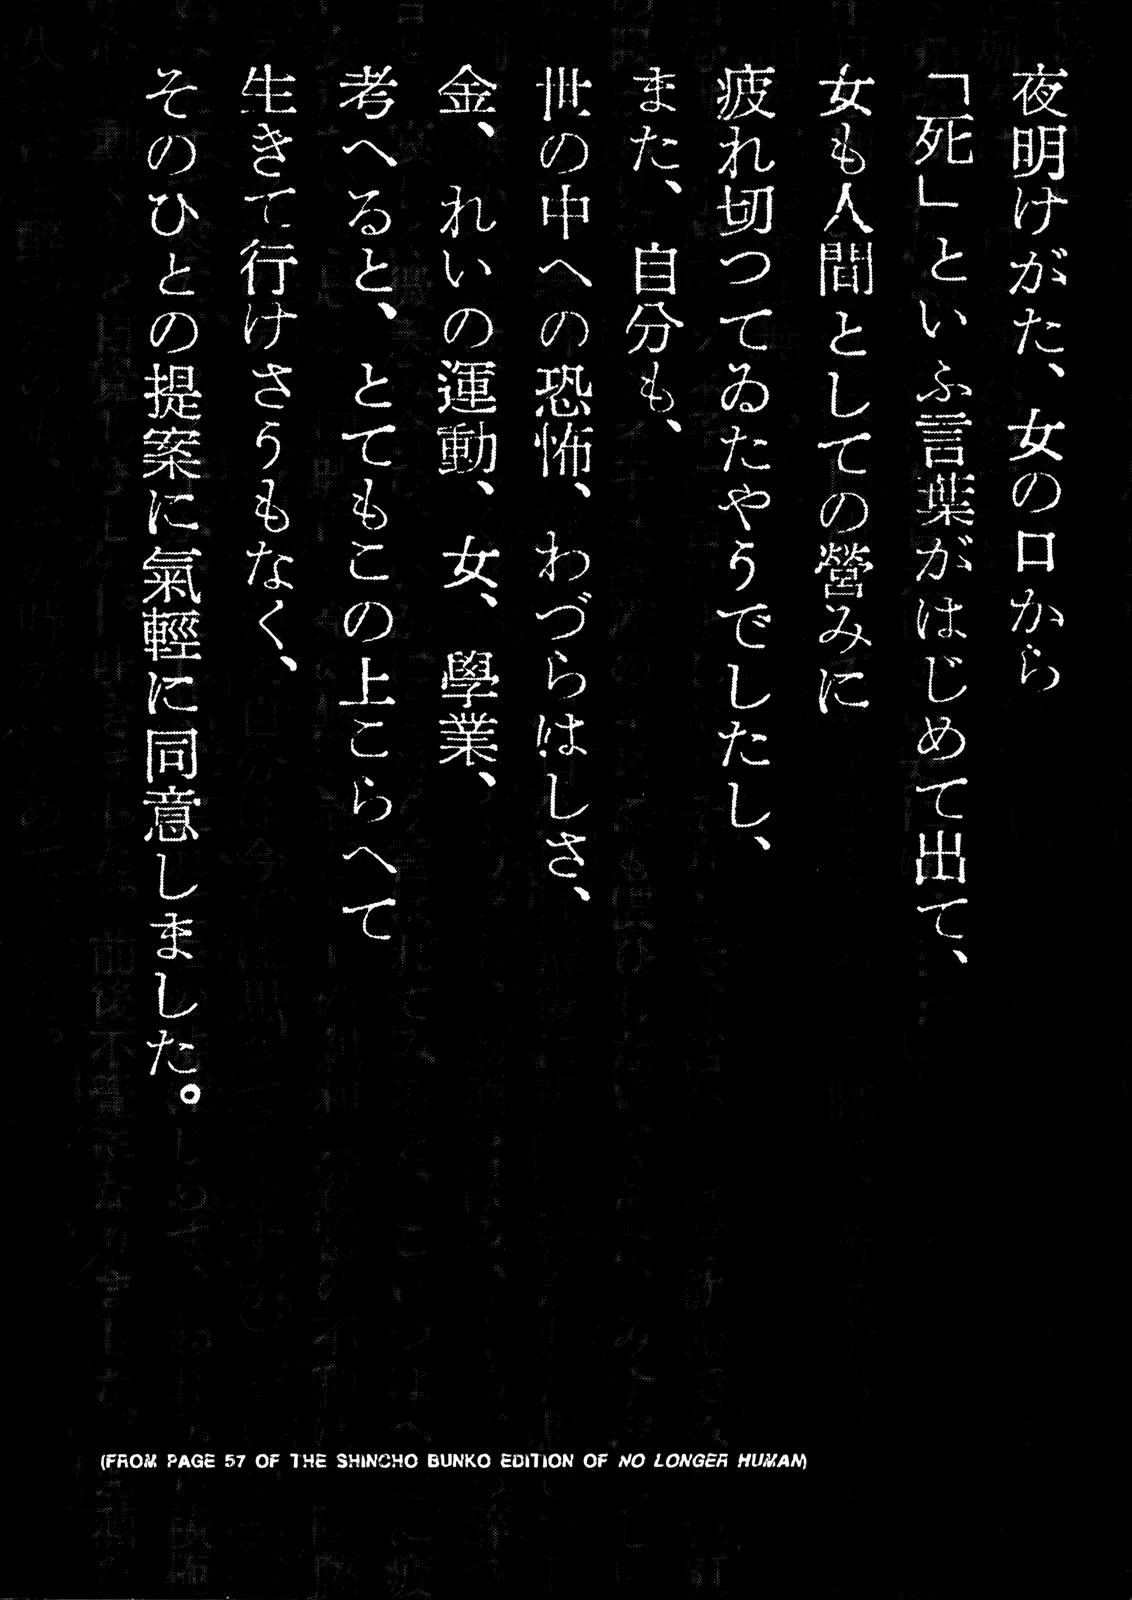 夜明けがた、女の口から
「死」といふ言葉がはじめて出て、
女も人間としての營みに
疲れ切つてゐたやうでしたし、
また、自分も、
世の中への恐怖、わづらはしさ、
金、れいの運動、女、學業、
考へると、とてもこの上こらへて
生きて行けさうもなく、
そのひとの提案に氣輕に同意しました。
(FROM PAGE 57 OF THE SHINCHO BUNKO EDITION OF NO LONGER HUMAN)